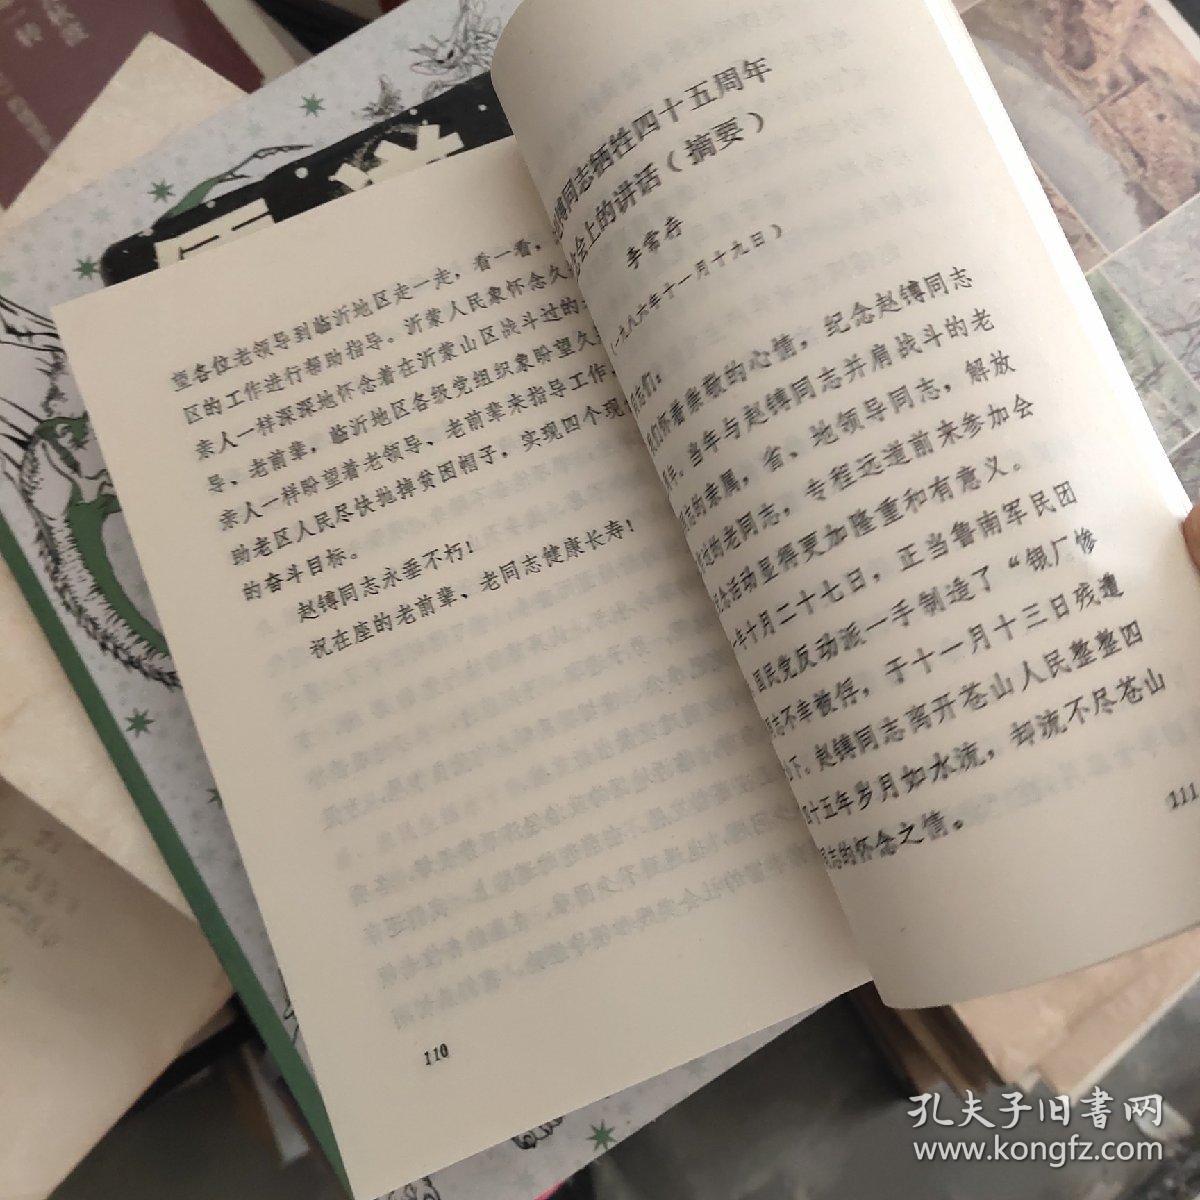 望各位老领导到临沂地区走一走，看一看，
区的工作进行帮助指导。沂蒙人民象怀念久
亲人一样深深地怀念着在沂蒙山区战斗过的
导、老前辈，临沂地区各级党组织象盼望久
亲人一样盼望着老领导、老前辈来指导工作
助老区人民尽快地掉贫困帽子，实现四个现
的奋斗目标。
赵镈同志永垂不朽！
祝在座的老前辈、老同志健康长寿！
110
同志牺牲四十五周年
会上的讲话（摘要）
李常存
一九八六年十一月十九日）
们：
们怀着崇敬的心情，纪念赵镈同志
年。当年与赵镈同志并肩战斗的老
志的亲属，省、地领导同志，解放
过的老同志，专程远道前来参加会
念活动显得更加隆重和有意义。
年十月二十七日，正当鲁南军民团
国民党反动派一手制造了“银厂惨
志不幸被俘，于十一月十三日残遭
下。赵镈同志离开苍山人民整整四
十五年岁月如水流，却流不尽苍山
同志的怀念之情。
111
孔夫子旧书网
www.kongfz.com